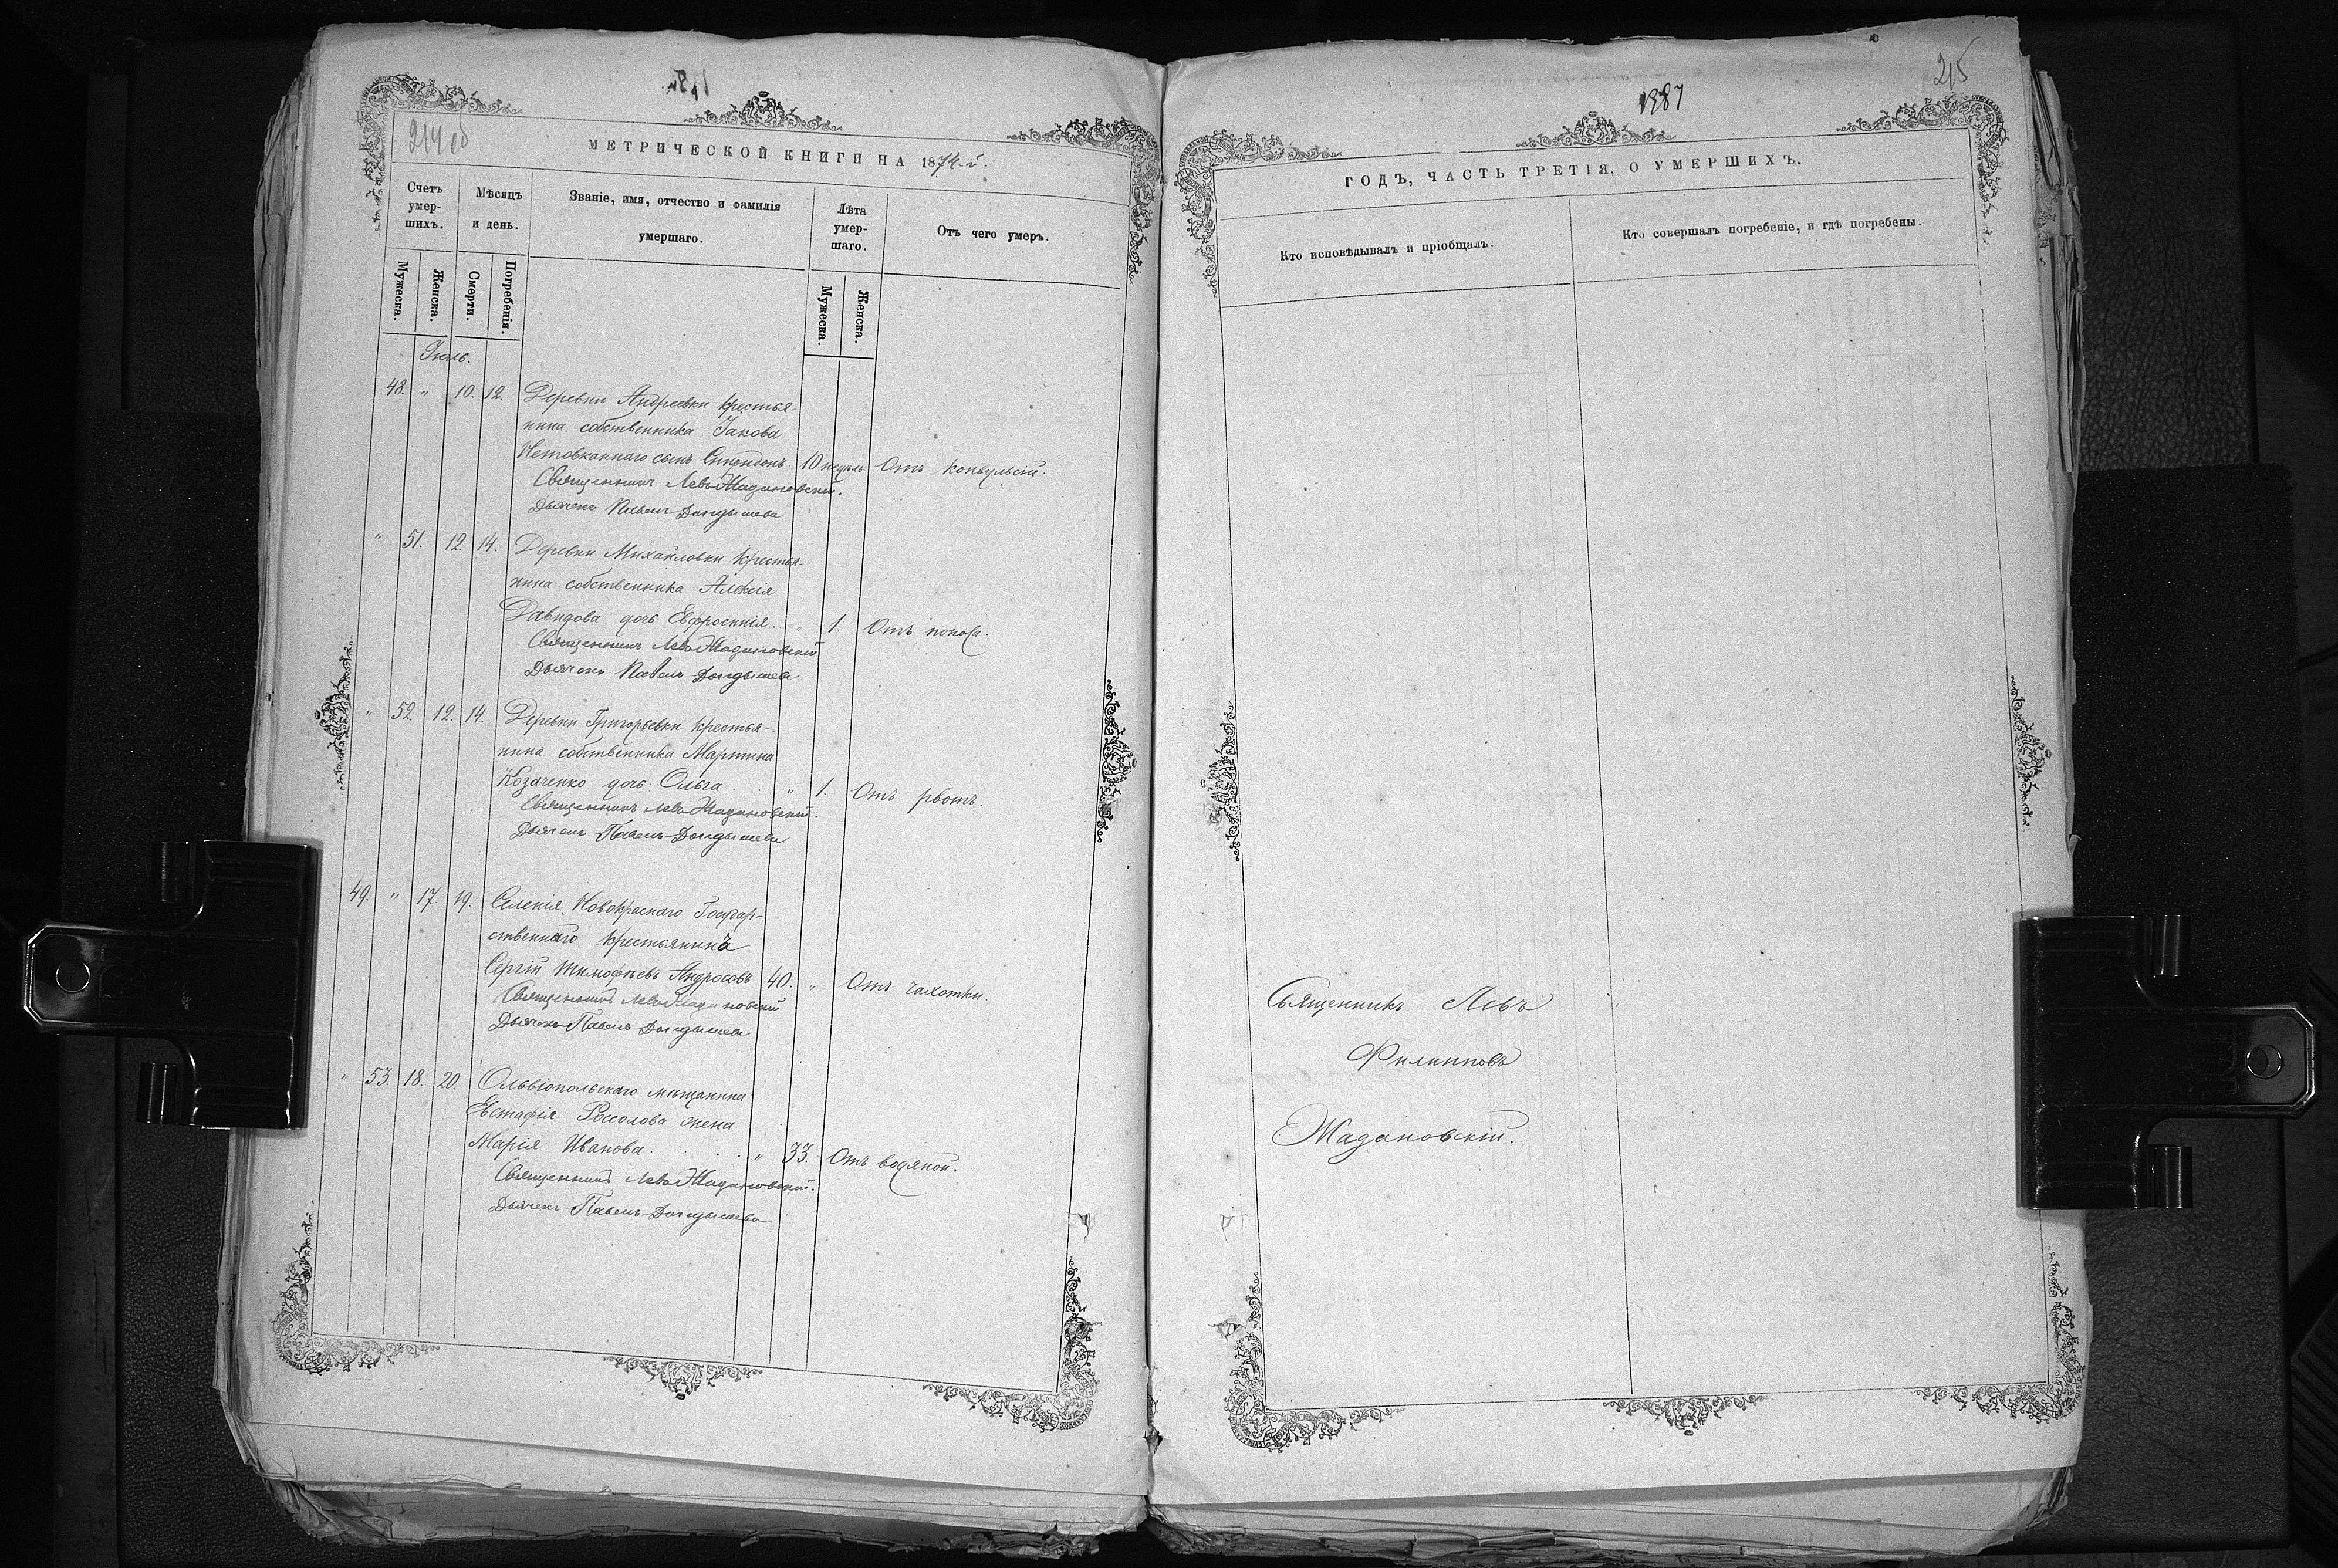 214 об
МЕТРИЧЕСКОЙ КНИГИ НА 1874-й.
Счетъ умер-шихъ.
Мѣсяцъ и день.
Званіе, имя, отчество и фамилія умершаго.
Лѣта умер-шаго.
Отъ чего умеръ.
Мужеска.
Женска.
Смерти.
Погребенія.
Мужеска.
Женска.
Іюль.
48. " 10. 12. Деревни Андреевки крестья-
нина собственника Іакова
сынъ Спиридонъ 10 недѣль Отъ конвульсій.
Священникъ Левъ Жадановскій.
Дьячекъ Павелъ
" 51. 12 14. Деревни Михайловки крестья-
нина собственника Алексія
Давидова дочь Евфросинія. " 1. Отъ поноса.
Священникъ Левъ Жадановскій
Дьячекъ Павелъ
" 52. 12. 14. Деревни Григорьевки крестья-
нина собственника Мартина
Козаченко дочь Ольга . . " 1. Отъ рвотъ.
Священникъ Левъ Жадановскій.
Дьячекъ Павелъ
49. " 17. 19. Селенія Новокраснаго Государ-
ственнаго крестьянина
Сергій Тимофѣевъ Андросовъ 40. " Отъ чахотки.
Священникъ Левъ Жадановскій
Дьячекъ Павелъ
" 53. 18. 20. Ольвіопольскаго мѣщанина
Евстафія Россолова жена
Марія Иванова. . . . " 33. Отъ водяной.
Священникъ Левъ Жадановскій.
Дьячекъ Павелъ
215
1887
ГОДЪ, ЧАСТЬ ТРЕТІЯ, О УМЕРШИХЪ.
Кто исповѣдывалъ и пріобщалъ.
Кто совершалъ погребеніе, и гдѣ погребены.
Священникъ Левъ
Филиповъ
Жадановскій.